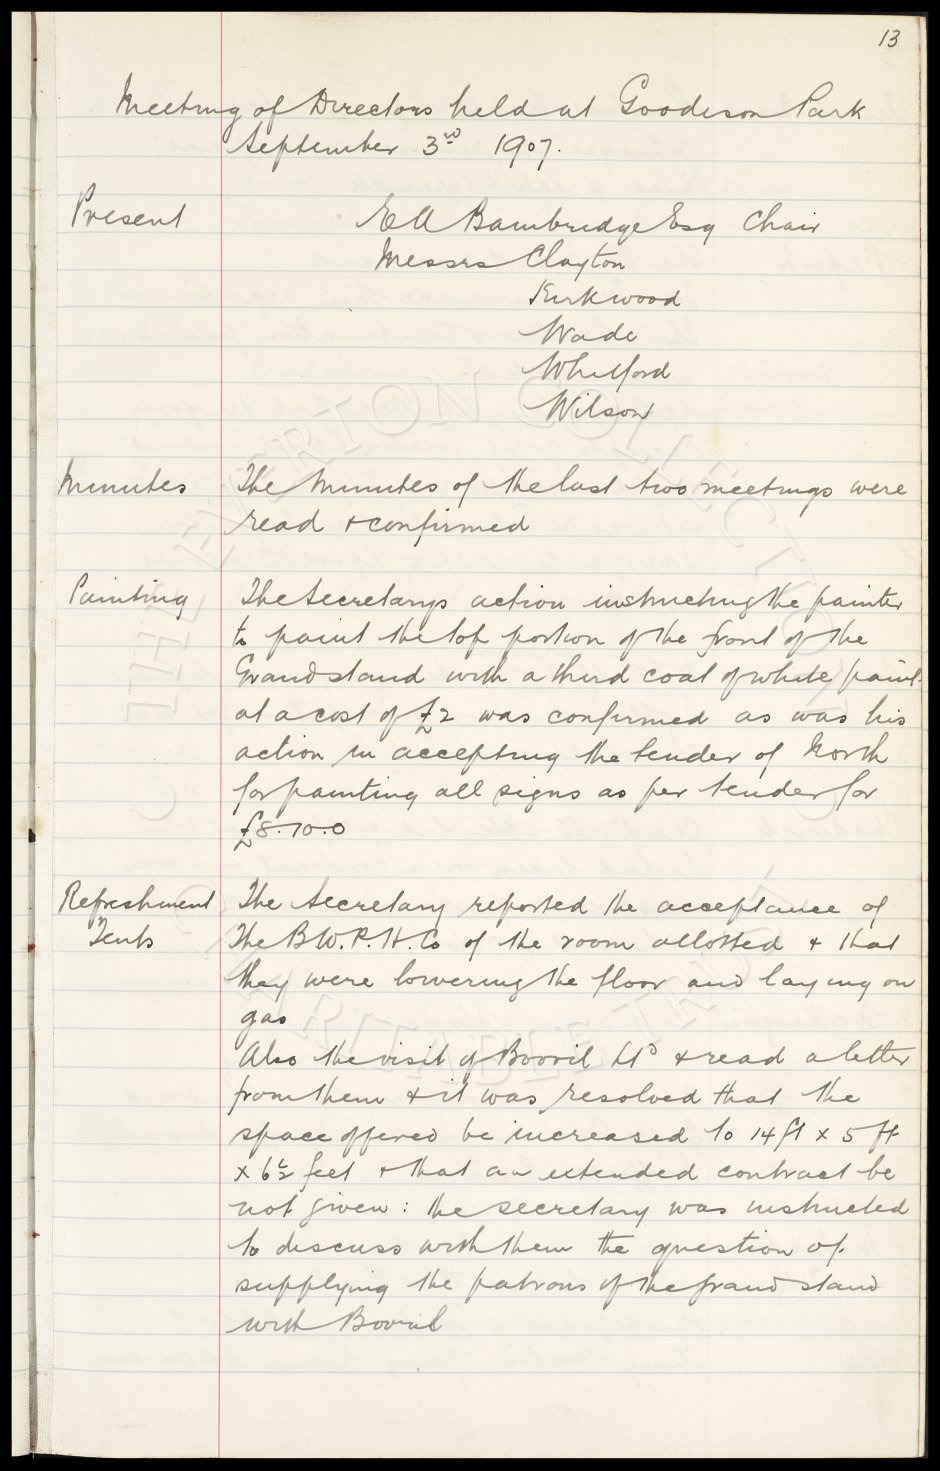 13
Meeting of Directors held at Goodison Park
September 3rd 1907.
Present E A Bainbridge Esq Chair
Messrs Clayton
Kirkwood
Wade
Whitford
Wilson
Minutes The Minutes of the last two meetings were
read + confirmed
Painting The Secretarys action instructing the painter
to paint the top portion of the front of the
Grandstand with a third coat of white paint
at a cost of £2 was confirmed as was his
action in accepting the tender of North
for painting all signs as per tender for
£8.10.0
Refreshment The Secretary reported the acceptance of
Tents The B.W.P.H. Co of the room allotted + that
they were lowering the floor and laying on
gas
Also the visit of Bovril Ltd + read a letter
from them + it was resolved that the
space offered be increased to 14 ft x 5 ft
x 6½ feet + that an extended contract be
not given : the secretary was instructed
to discuss with them the question of
supplying the patrons of the grand stand
with Bovril
THE EVERTON COLLECTION
CHARITABLE TRUST